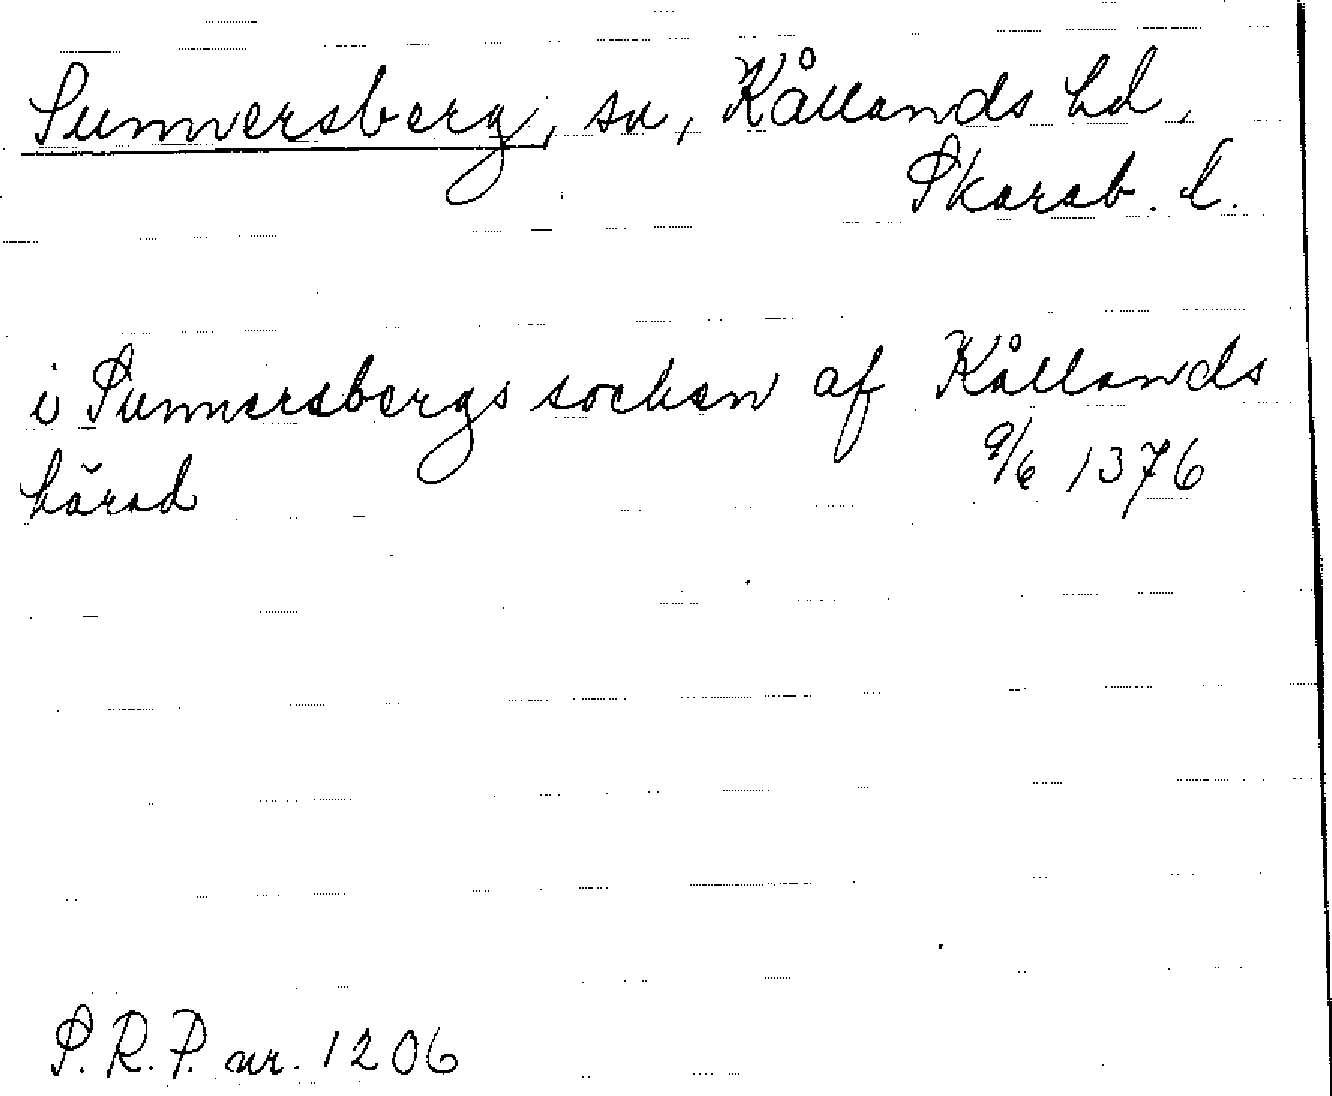 Sunnersberg, sn, Kållands hd,
Skarab. l.
i Sunnersbergs socken af Kållands
härad 9/6 1376
S.R.P. nr. 1206